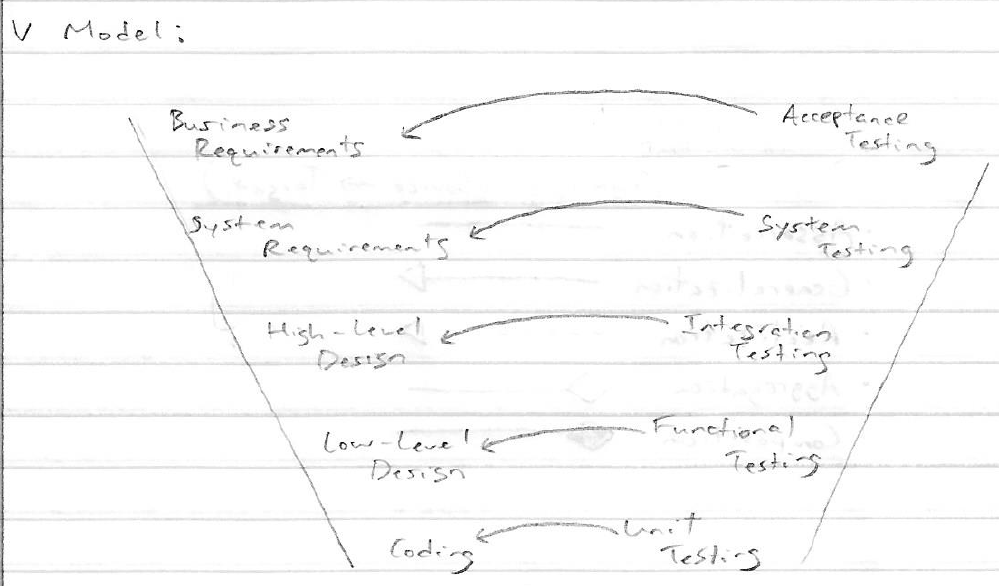 V Model:
Business Requirements
Acceptance Testing
System Requirements
System Testing
High-Level Design
Integration Testing
Low-Level Design
Functional Testing
Coding
Unit Testing